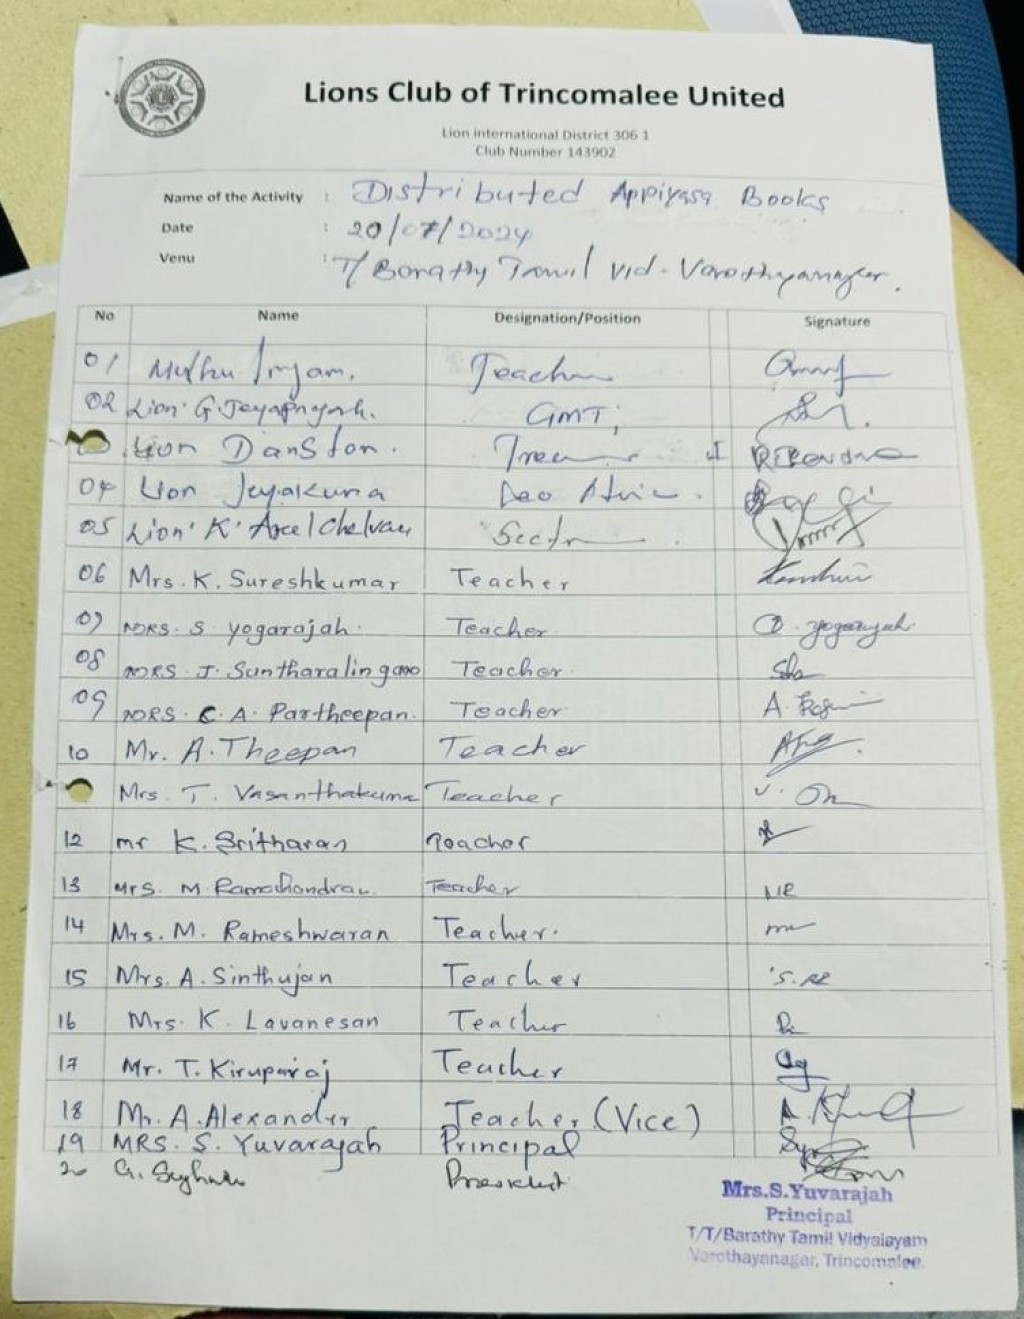 Lions Club of Trincomalee United
Lion international District 306 1
Club Number 143902
Name of the Activity : Distributed Appiyasa Books
Date : 20/07/2024
Venu : T/ Barathy Tamil Vid - Varothyanager.
No Name Designation/Position Signature
01 Teacher
02 Lion G. GMT;
Lion Danston.
04 Lion Jeyakuma
05 Lion K
06 Mrs. K. Sureshkumar Teacher
07 MRS. S yogarajah. Teacher yogarajah
08 MRS. J. Suntharalingam Teacher.
09 MRS. C. A. Partheepan. Teacher A.
10 Mr. A. Theepan Teacher
Mrs. T. Vasanthakuma Teacher
12 mr K. Sritharan Teacher
13 Mrs. M. Teacher MR
14 Mrs. M. Rameshwaran Teacher.
15 Mrs. A. Sinthujan Teacher
16 Mrs. K. Lavanesan Teacher
17 Mr. T. Kiruparaj Teacher
18 Mr. A. Alexander Teacher (Vice) A.
19 MRS. S. Yuvarajah Principal
20 G. President
Mrs.S.Yuvarajah
Principal
T/T/Barathy Tamil Vidyalayam
Varothayanagar, Trincomalee.